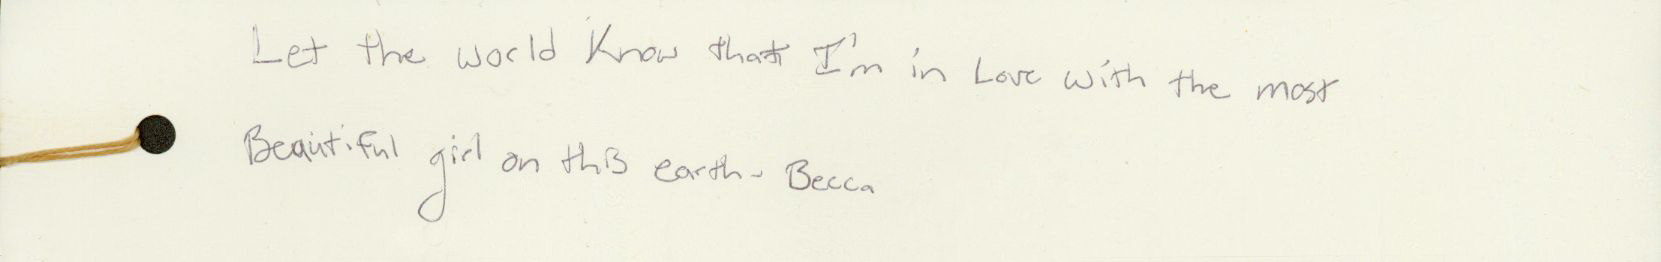 Let the world Know that I'm in Love with the most
Beautiful girl on this earth - Becca